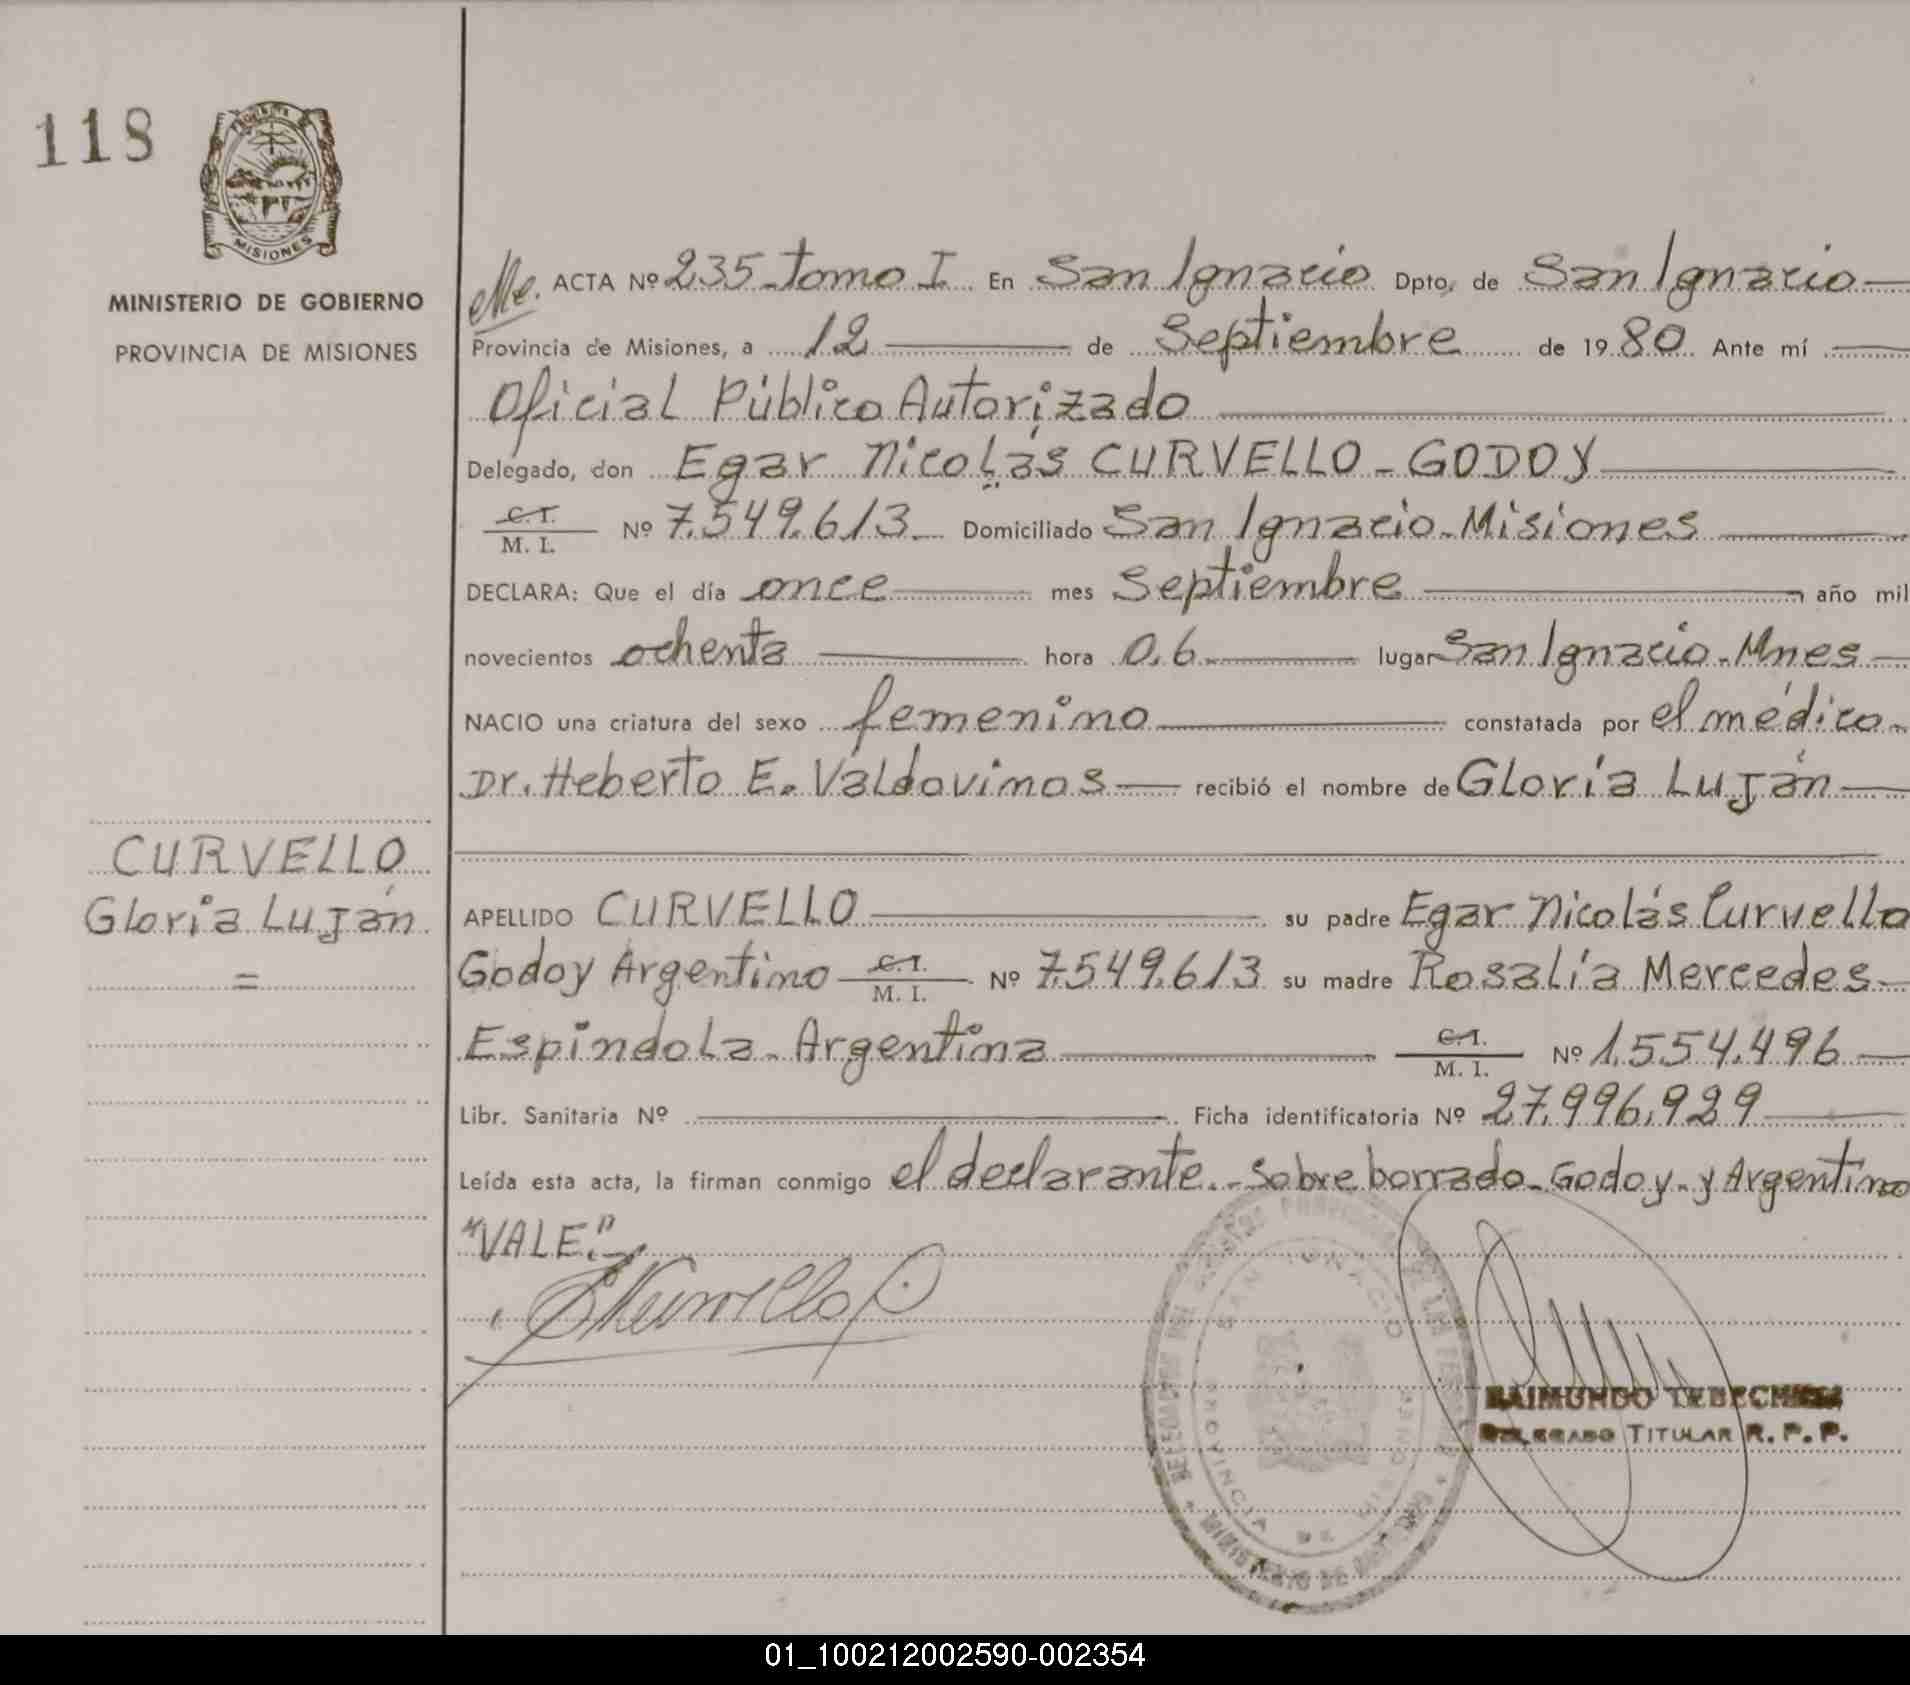 118
MISIONES
MINISTERIO DE GOBIERNO
PROVINCIA DE MISIONES
ACTA Nº 235 - tomo I. En San Ignacio Dpto. de San Ignacio
Provincia de Misiones, a 12 de Septiembre de 1980. Ante mí
Oficial Público Autorizado
Delegado, don Egar Nicolás CURVELLO - GODOY
C. I.
M. I. Nº 7.549.613 Domiciliado San Ignacio - Misiones
DECLARA: Que el día once mes Septiembre año mil
novecientos ochenta hora 0.6 lugar San Ignacio - Mnes
NACIO una criatura del sexo femenino constatada por el médico
Dr. Heberto E. Valdovinos recibió el nombre de Gloria Luján
CURVELLO
Gloria Luján
=
APELLIDO CURVELLO su padre Egar Nicolás Curvello
Godoy Argentino C. I. M. I. Nº 7.549.613 su madre Rosalía Mercedes
Espindola - Argentina C. I. M. I. Nº 1.554.496
Libr. Sanitaria Nº Ficha identificatoria Nº 27.996.929
Leída esta acta, la firman conmigo el declarante. - Sobre borrado - Godoy - y Argentino
"VALE" . -
SAN IGNACIO
PROVINCIA DE
MINISTERIO DE
RAIMUNDO
DELEGADO TITULAR R. P. P.
01_100212002590-002354